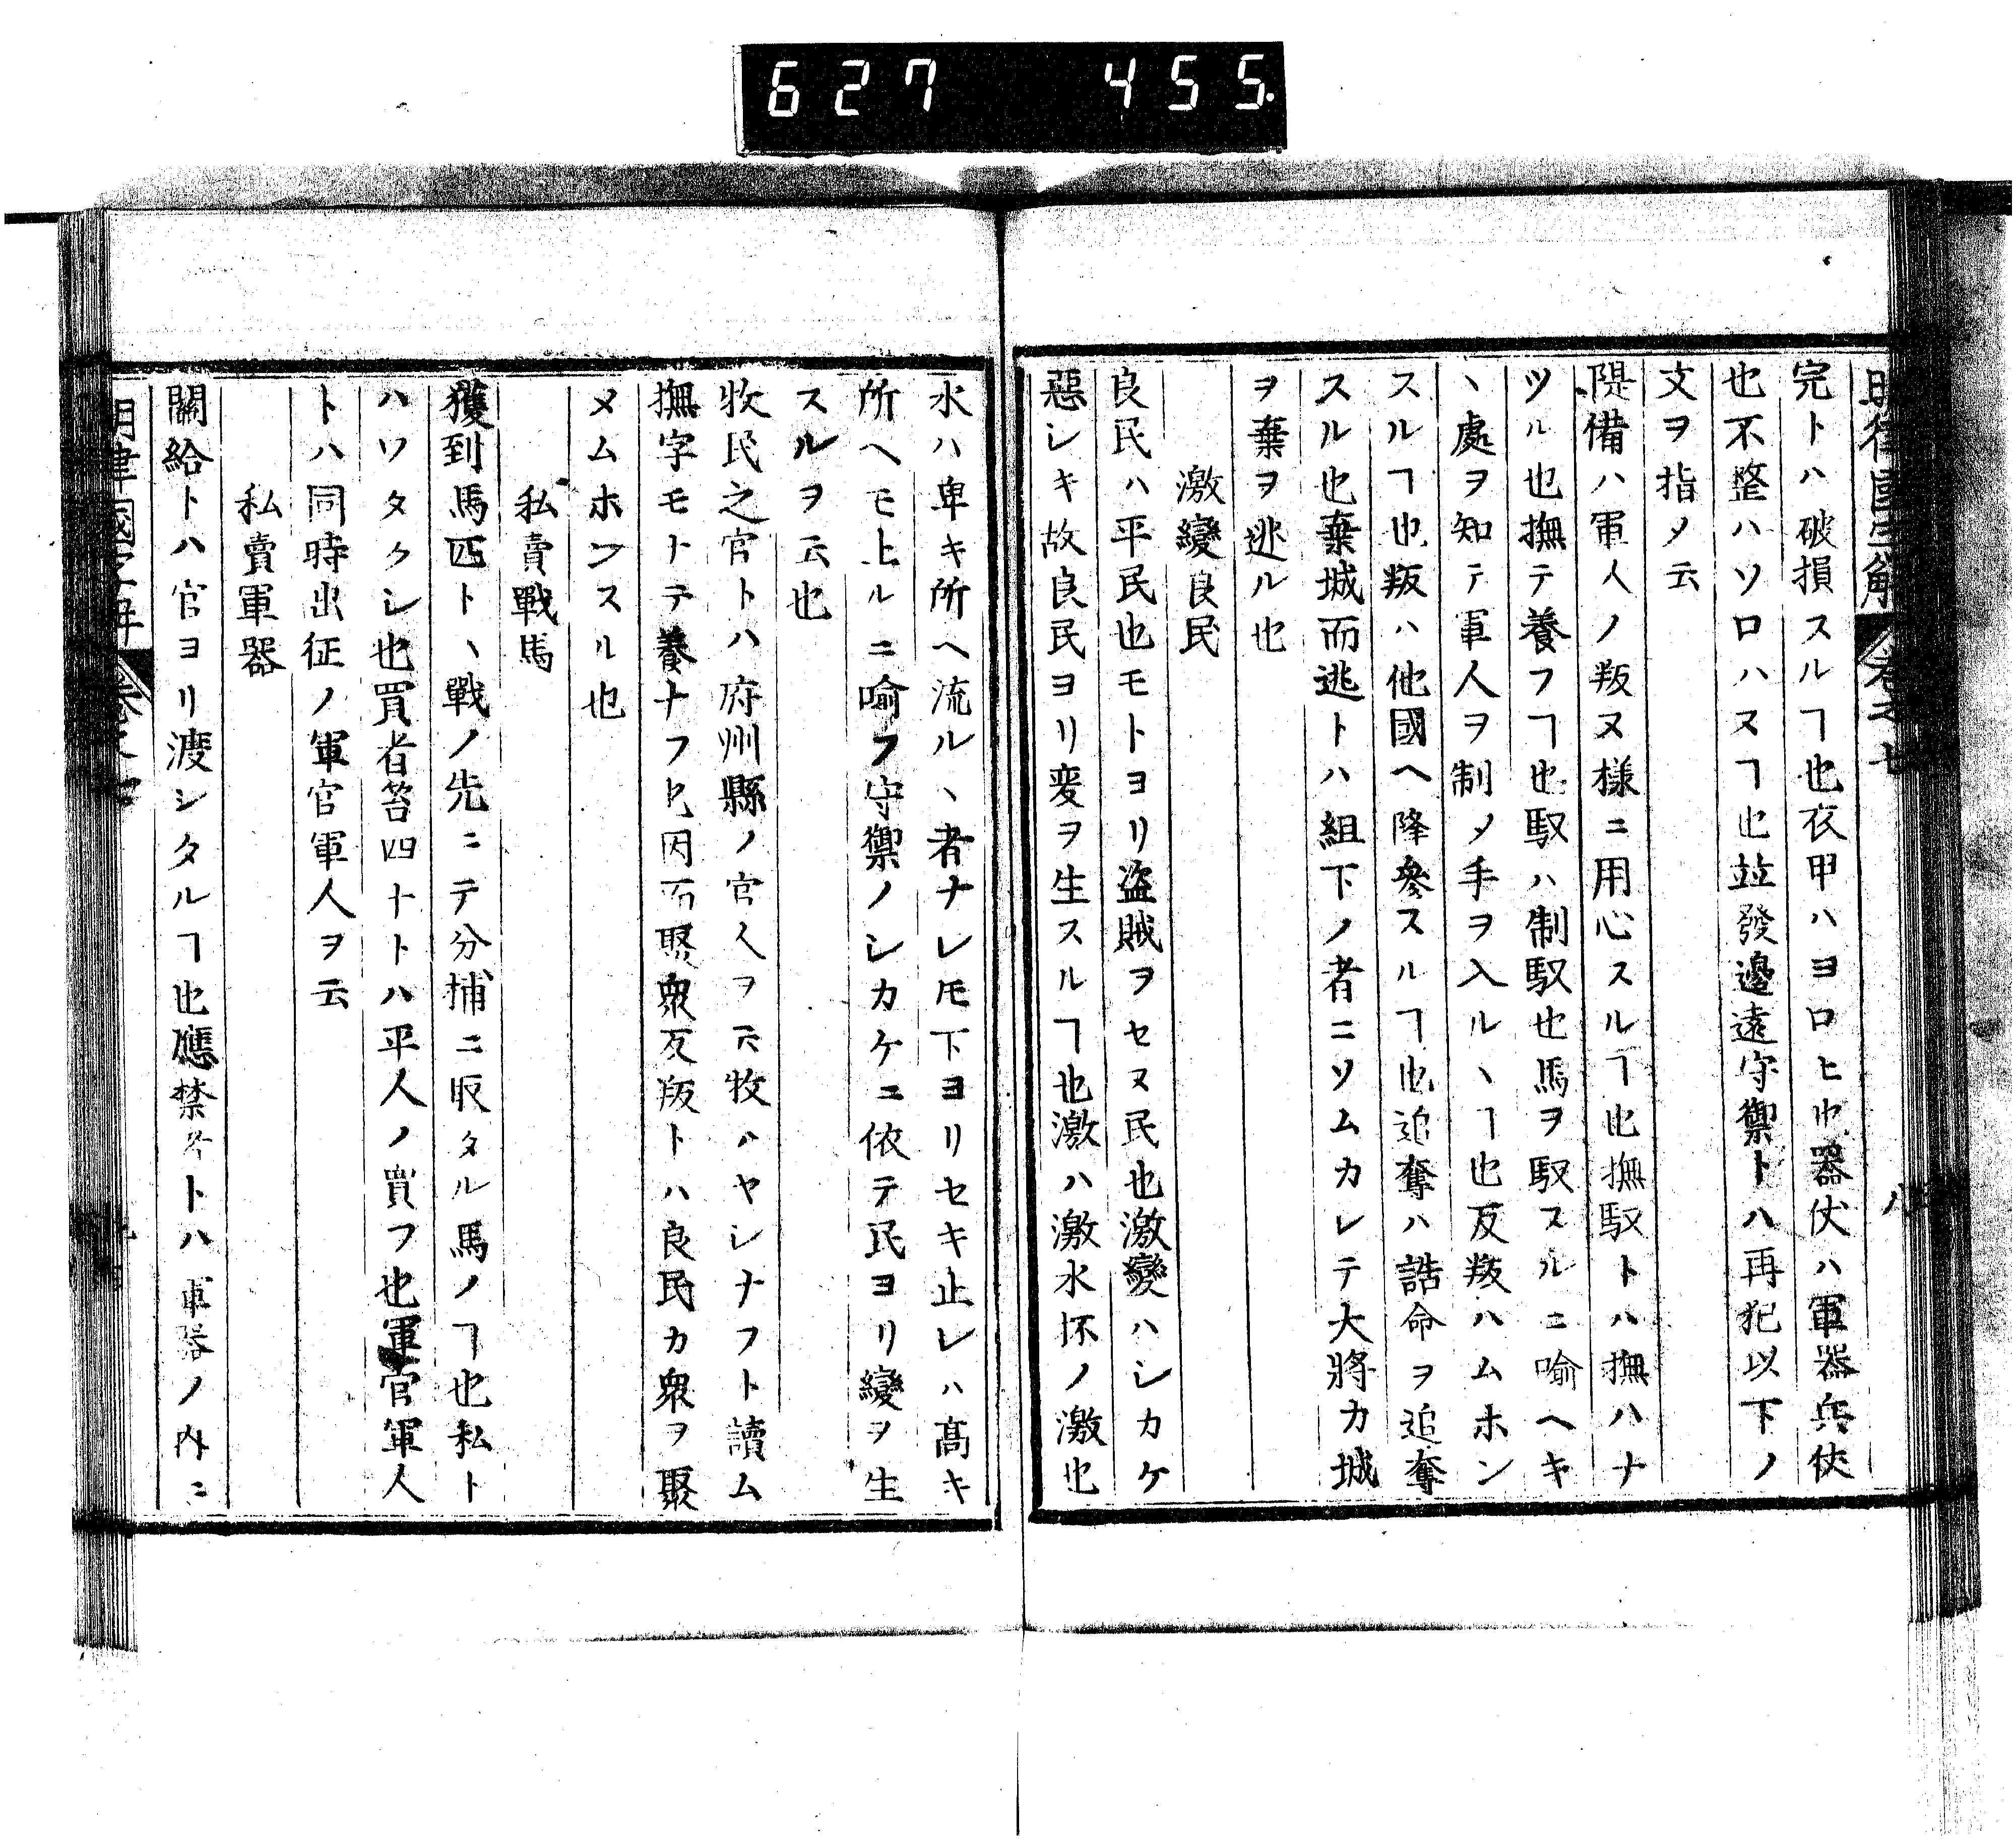 627 455.
明律國字解 卷之七 八
完トハ破損スルヿ也衣甲ハヨロヒ也器仗ハ軍器兵仗
也不整ハソロハヌヿ也並發邊遠守禦トハ再犯以下ノ
文ヲ指メ云
隄備ハ軍人ノ叛ヌ樣ニ用心スルヿ也撫馭トハ撫ハナ
ツル也撫テ養フヿ也馭ハ制馭也馬ヲ馭スルニ喻ヘキ
丶處ヲ知テ軍人ヲ制メ手ヲ入ル丶ヿ也反叛ハムホン
スルヿ也叛ハ他國ヘ降參スルヿ也追奪ハ誥命ヲ追奪
スル也棄城而逃トハ組下ノ者ニソムカレテ大將カ城
ヲ棄ヲ逃ル也
激變良民
良民ハ平民也モトヨリ盜賊ヲセヌ民也激變ハシカケ
惡シキ故良民ヨリ変ヲ生スルヿ也激ハ激水抔ノ激也
水ハ卑キ所ヘ流ル丶者ナレ𪜈下ヨリセキ止レハ髙キ
所ヘモ上ルニ喻フ守禦ノシカケニ依テ民ヨリ變ヲ生
スルヲ云也
牧民之官トハ府州縣ノ官人ヲ云牧ハヤシナフト讀ム
撫字モトテ養ナフ也因而聚衆反叛トハ良民カ衆ヲ聚
メムホンスル也
私賣戰馬
獲到馬匹ト丶戰ノ先ニテ分捕ニ取タル馬ノヿ也私ト
ハワタクシ也買者笞四十トハ平人ノ買フ也軍官軍人
トハ同時出征ノ軍官軍人ヲ云
私賣軍器
關給トハ官ヨリ渡シタルヿ也應禁トハ軍器ノ内ニ
明律國字解 卷之七 九